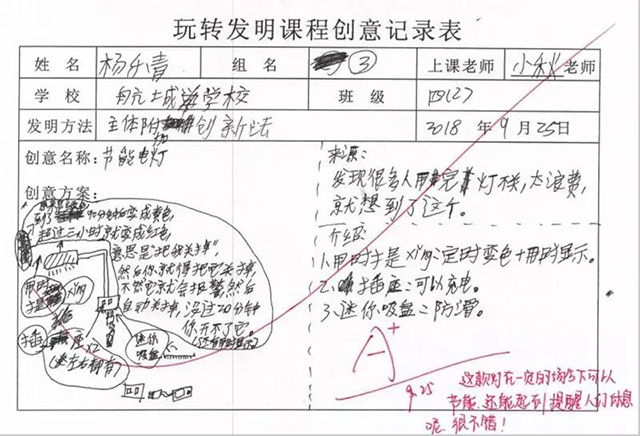 玩转发明课程创意记录表
姓 名 杨千青 组 名 ③ 上课老师 小秋老师
学 校 航土城学校 班 级 四(7)
发明方法 主体附加创新法 2018 年 9 月 25日
创意名称: 节能灯
创意方案:
到了 90分钟变成黄色,
超过三小时就变成红色,
意思是"把我关掉",
然后你就得把它关掉,
不然它就会报警,然后
自动关掉,没过20分钟
你开不了它。
用时提示
插座x2
(左右都有)
迷你
吸盘
来源:
发现很多人用完灯不关,太浪费,
就想到了这个。
介绍:
1.用时提示xing:定时变色+用时显示。
2.插座:可以充电。
3.迷你吸盘:防滑。
A+
9.25
这款灯在一定的场合下可以
节能.还能起到提醒人们休息
呢.很不错!